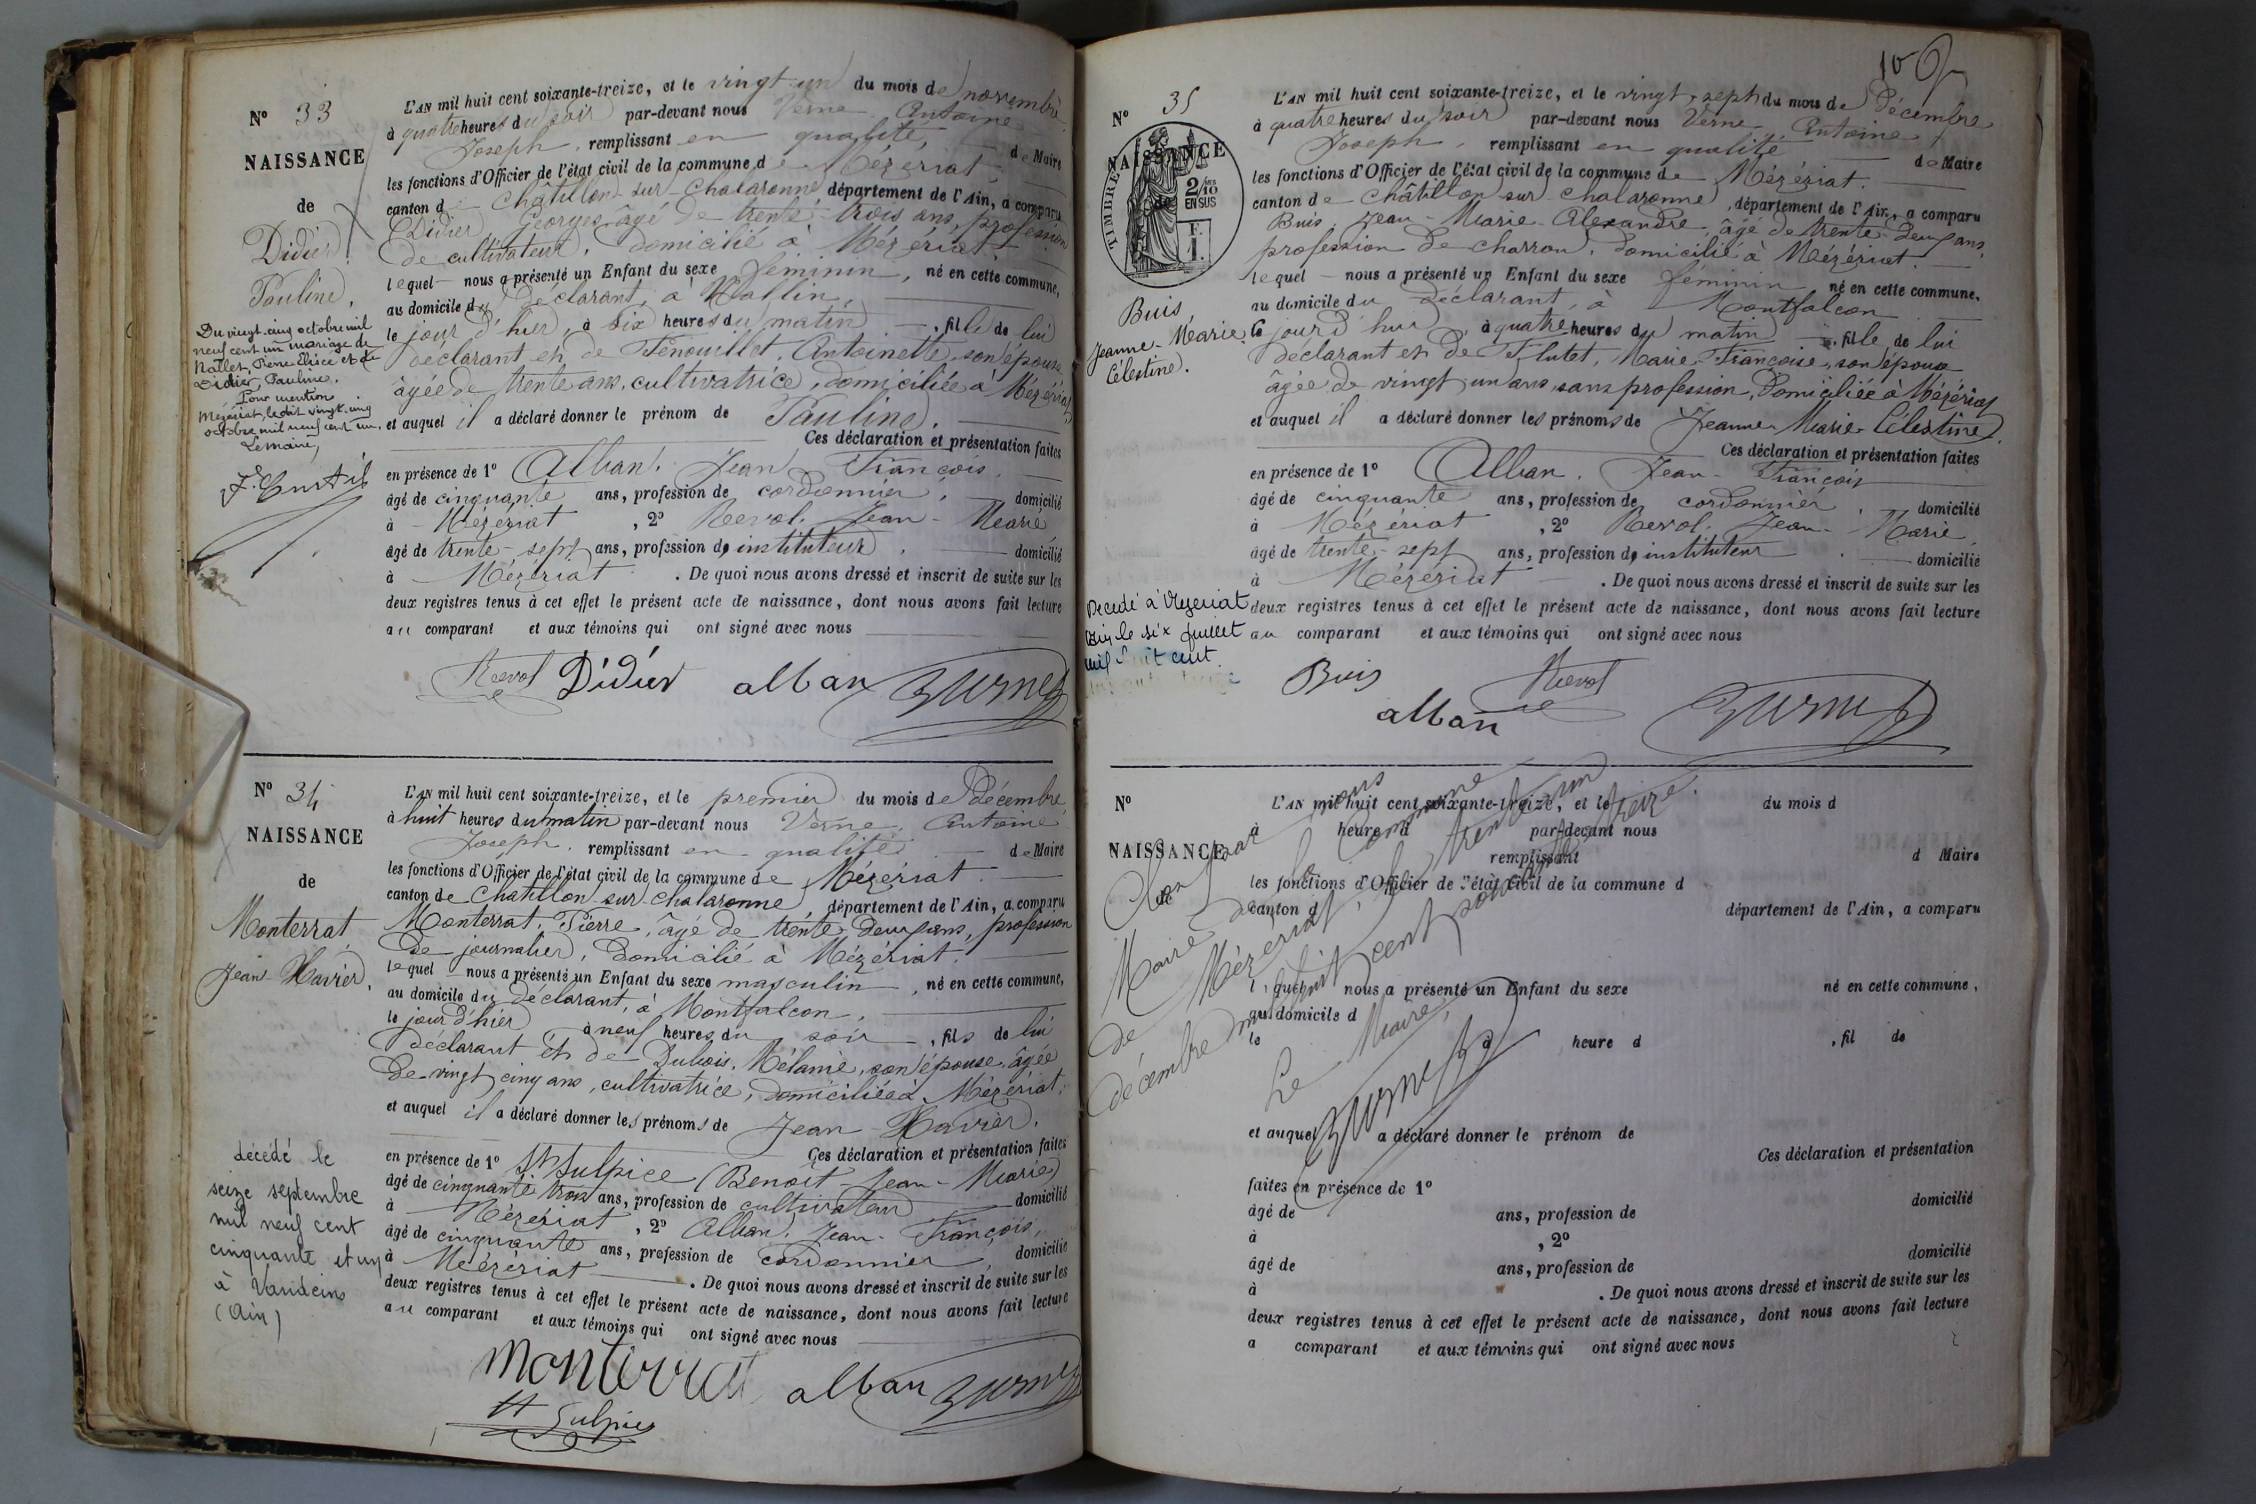 N° 33
NAISSANCE
de
Didier
Pauline.
Du vingt-cinq octobre mil
neuf cent un mariage de
Nallet, René Elice et de
Didier, Pauline.
Pour mention
Mézériat, le dit vingt-cinq
octobre mil neuf cent un.
Le maire,
L'AN mil huit cent soixante-treize, et le vingt-un du mois de novembre
à quatre heures du soir par-devant nous Verne Antoine
Joseph, remplissant en qualité de Maire
les fonctions d'Officier de l'état civil de la commune de Mézériat,
canton de Châtillon-sur-Chalaronne département de l'Ain, a comparu
Didier Georges âgé de trente-trois ans, profession
de cultivateur, domicilié à Mézériat.
lequel nous a présenté un Enfant du sexe féminin, né en cette commune,
au domicile du déclarant, à
le jour d'hier, à six heures du matin, fille de lui
déclarant et de Fenouillet, Antoinette, son épouse
âgée de trente ans, cultivatrice, domiciliée à Mézériat,
et auquel il a déclaré donner le prénom de Pauline.
Ces déclaration et présentation faites
en présence de 1° Alban, Jean François,
âgé de cinquante ans, profession de cordonnier, domicilié
à Mézériat, 2° Revol, Jean-Marie
âgé de trente-sept ans, profession de instituteur. domicilié
à Mézériat. De quoi nous avons dressé et inscrit de suite sur les
deux registres tenus à cet effet le présent acte de naissance, dont nous avons fait lecture
au comparant et aux témoins qui ont signé avec nous
Revol Didier alban Verne
N° 34
NAISSANCE
de
Monterrat
Jean-Xavier.
décédé le
seize septembre
mil neuf cent
cinquante et un
à Vandeins
(Ain)
L'AN mil huit cent soixante-treize, et le premier du mois de décembre
à huit heures du matin par-devant nous Verne Antoine
Joseph, remplissant en qualité de Maire
les fonctions d'Officier de l'état civil de la commune de Mézériat.
canton de Chatillon-sur-Chalaronne département de l'Ain, a comparu
Monterrat, Pierre, âgé de trente-deux ans, profession
de journalier, domicilié à Mézériat.
lequel nous a présenté un Enfant du sexe masculin, né en cette commune,
au domicile du déclarant, à Montfalcon,
le jour d'hier à neuf heures du soir, fils de lui
déclarant et de Dubois, Mélanie, son épouse, âgée
de vingt-cinq ans, cultivatrice, domiciliée à Mézériat,
et auquel il a déclaré donner les prénoms de Jean-Xavier.
Ces déclaration et présentation faites
en présence de 1° St Sulpice (Benoit-Jean-Marie)
âgé de cinquante-trois ans, profession de cultivateur domicilié
à Mézériat, 2° Alban, Jean-François,
âgé de cinquante ans, profession de cordonnier, domicilié
à Mézériat. De quoi nous avons dressé et inscrit de suite sur les
deux registres tenus à cet effet le présent acte de naissance, dont nous avons fait lecture
au comparant et aux témoins qui ont signé avec nous
Monterrat alban Verne
St Sulpice
10
N° 35
NAISSANCE
de
TIMBRE
2/10
EN SUS
F.
1.
Buis,
Jeanne-Marie
Célestine.
Décédé à Mézériat
Ain le six juillet
mil huit cent
L'AN mil huit cent soixante-treize, et le vingt-sept du mois de décembre
à quatre heures du soir par-devant nous Verne Antoine
Joseph, remplissant en qualité de Maire
les fonctions d'Officier de l'état civil de la commune de Mézériat.
canton de Châtillon sur Chalaronne, département de l'Ain, a comparu
Buis, Jean-Marie-Alexandre, âgé de trente-deux ans,
profession de charron, domicilié à Mézériat.
lequel nous a présenté un Enfant du sexe féminin né en cette commune,
au domicile du déclarant, à Montfalcon
le jourd'hui, à quatre heures du matin, fille de lui
déclarant et de Flutet, Marie-Françoise, son épouse
âgée de vingt-un ans, sans profession, domiciliée à Mézériat
et auquel il a déclaré donner les prénoms de Jeanne-Marie-Célestine.
Ces déclaration et présentation faites
en présence de 1° Alban, Jean-François
âgé de cinquante ans, profession de cordonnier, domicilié
à Mézériat, 2° Revol, Jean-Marie,
âgé de trente-sept ans, profession de instituteur. domicilié
à Mézériat. De quoi nous avons dressé et inscrit de suite sur les
deux registres tenus à cet effet le présent acte de naissance, dont nous avons fait lecture
au comparant et aux témoins qui ont signé avec nous
Buis Revol
alban Verne
N°
NAISSANCE
de
L'AN mil huit cent soixante-treize, et le du mois d
à heure d par-devant nous
remplissant d Maire
les fonctions d'Officier de l'état civil de la commune d
canton d département de l'Ain, a comparu
l quel nous a présenté un Enfant du sexe né en cette commune,
au domicile d
le à heure d, fil de
et auquel a déclaré donner le prénom de
Ces déclaration et présentation
faites en présence de 1°
âgé de ans, profession de domicilié
à, 2°
âgé de ans, profession de domicilié
à. De quoi nous avons dressé et inscrit de suite sur les
deux registres tenus à cet effet le présent acte de naissance, dont nous avons fait lecture
a comparant et aux témoins qui ont signé avec nous
Clos par nous
Maire de la Commune
de Mézériat, le trente-un
décembre mil huit cent soixante-treize.
Le Maire,
Verne